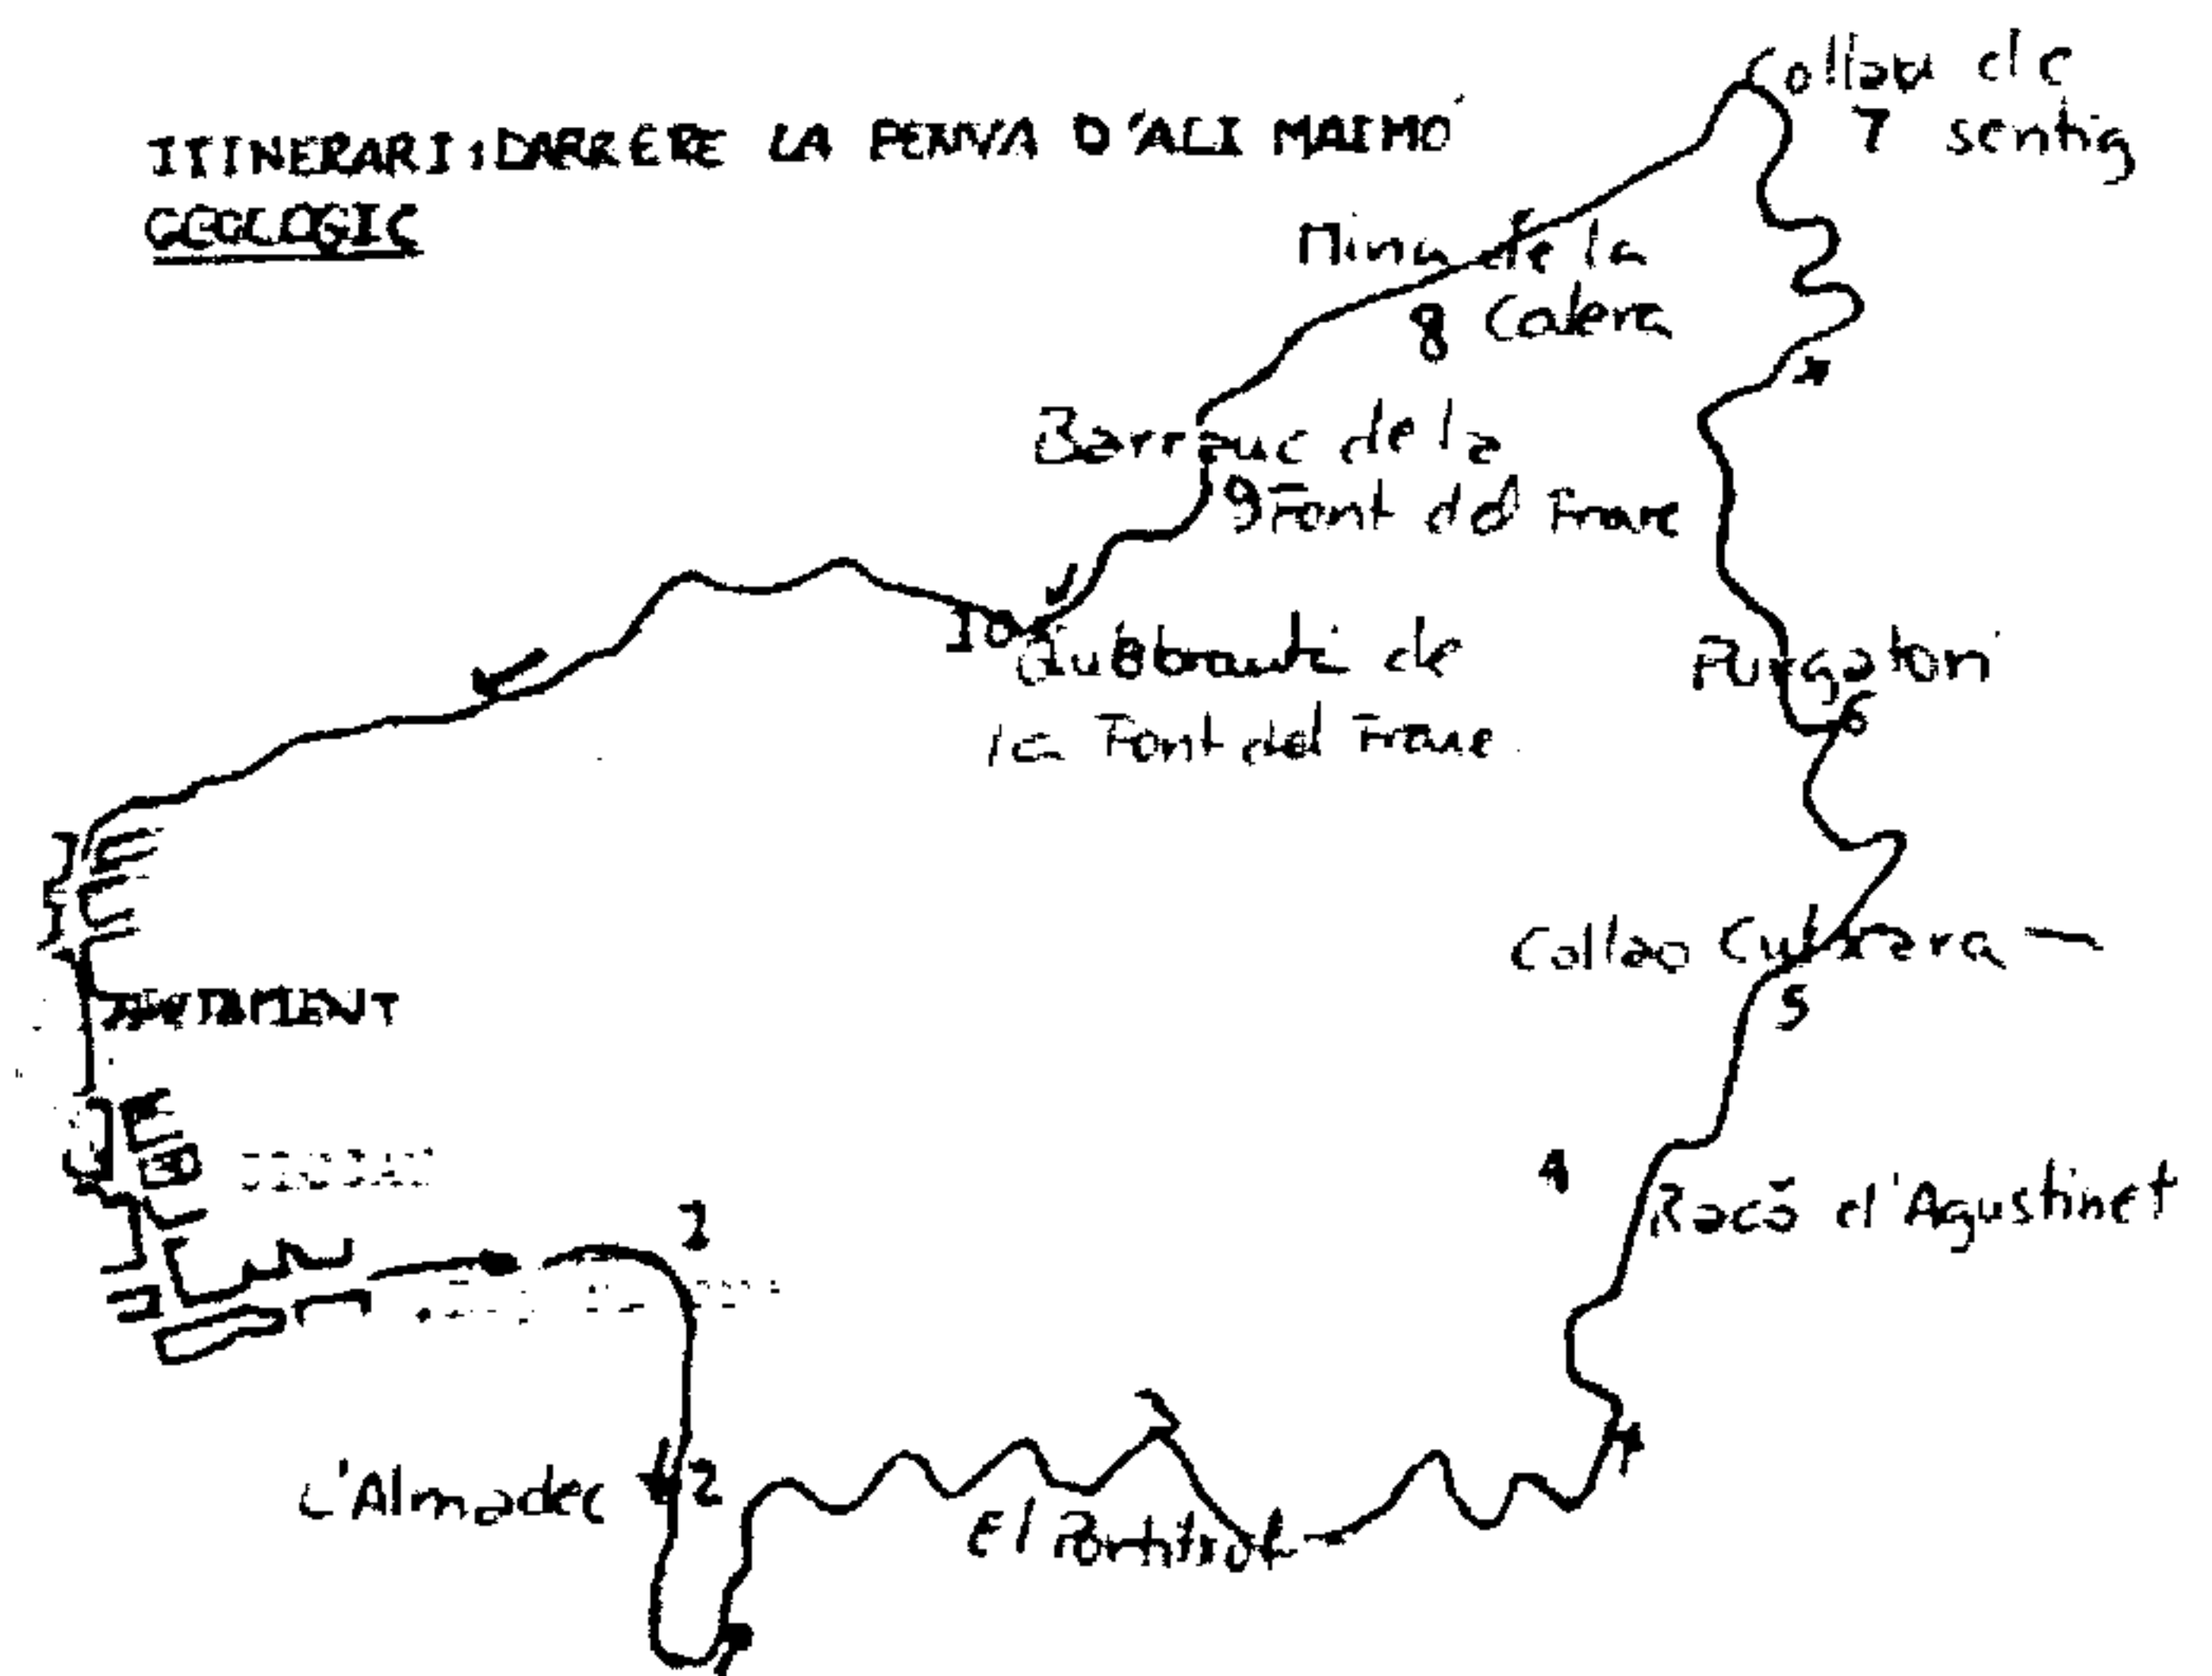 ITINERARI: DARRERE LA PENYA D'ALI MAIMÓ
GEOLOGIC
Collau de
7 sentig
Mina de la
8 Calera
Barranc de la
9 Font del Frare
10
de
la Font del Frare
Purgatori
6
Collao Cubrera
5
AJUNTAMENT
4
Racó d'Agustinet
1
L'Almadec 2
El Portitxol